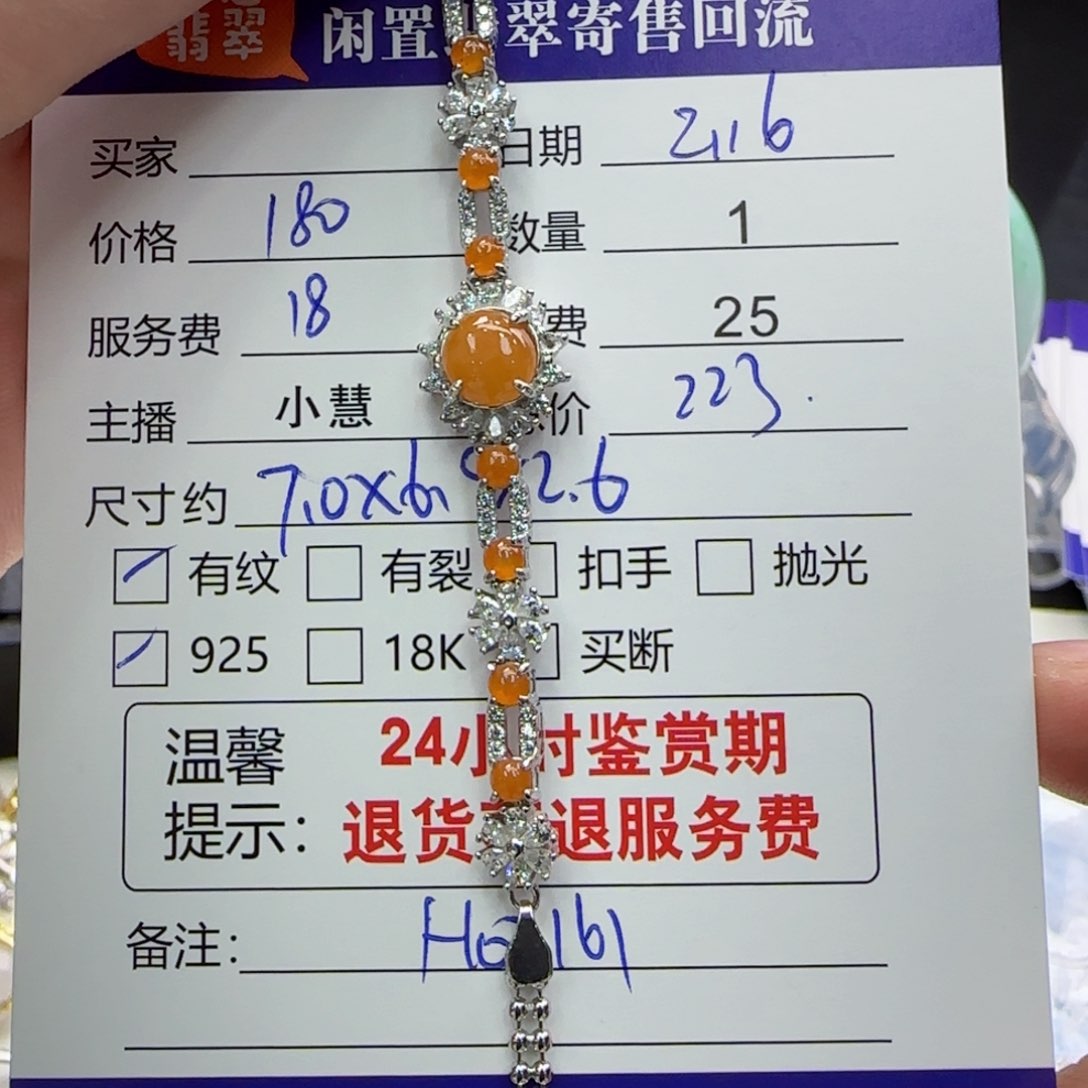 翡翠
闲置 翠寄售回流
买家 日期 2.16
价格 180 数量 1
服务费 18 费 25
主播 小慧 价 223.
尺寸约 7.0X6. X2.6
有纹 有裂 扣手 抛光
925 18K 买断
温馨 24小时鉴赏期
提示: 退货 退服务费
备注: 161